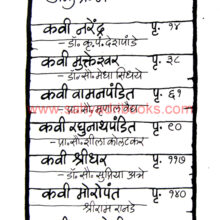 कवी नरेंद्र पृ. १४
- डॉ. कृ. पं. देशपांडे
कवी मुक्तेश्वर पृ. ३८
- डॉ. सौ. मेधा सिधये
कवी वामनपंडित पृ. ६१
कवी रघुनाथपंडित पृ. ९०
- प्रा. सौ. शीला कोलटकर
कवी श्रीधर पृ. ११७
- डॉ. सौ. सुप्रिया अत्रे
कवी मोरोपंत पृ. १४०
श्रीराम रानडे